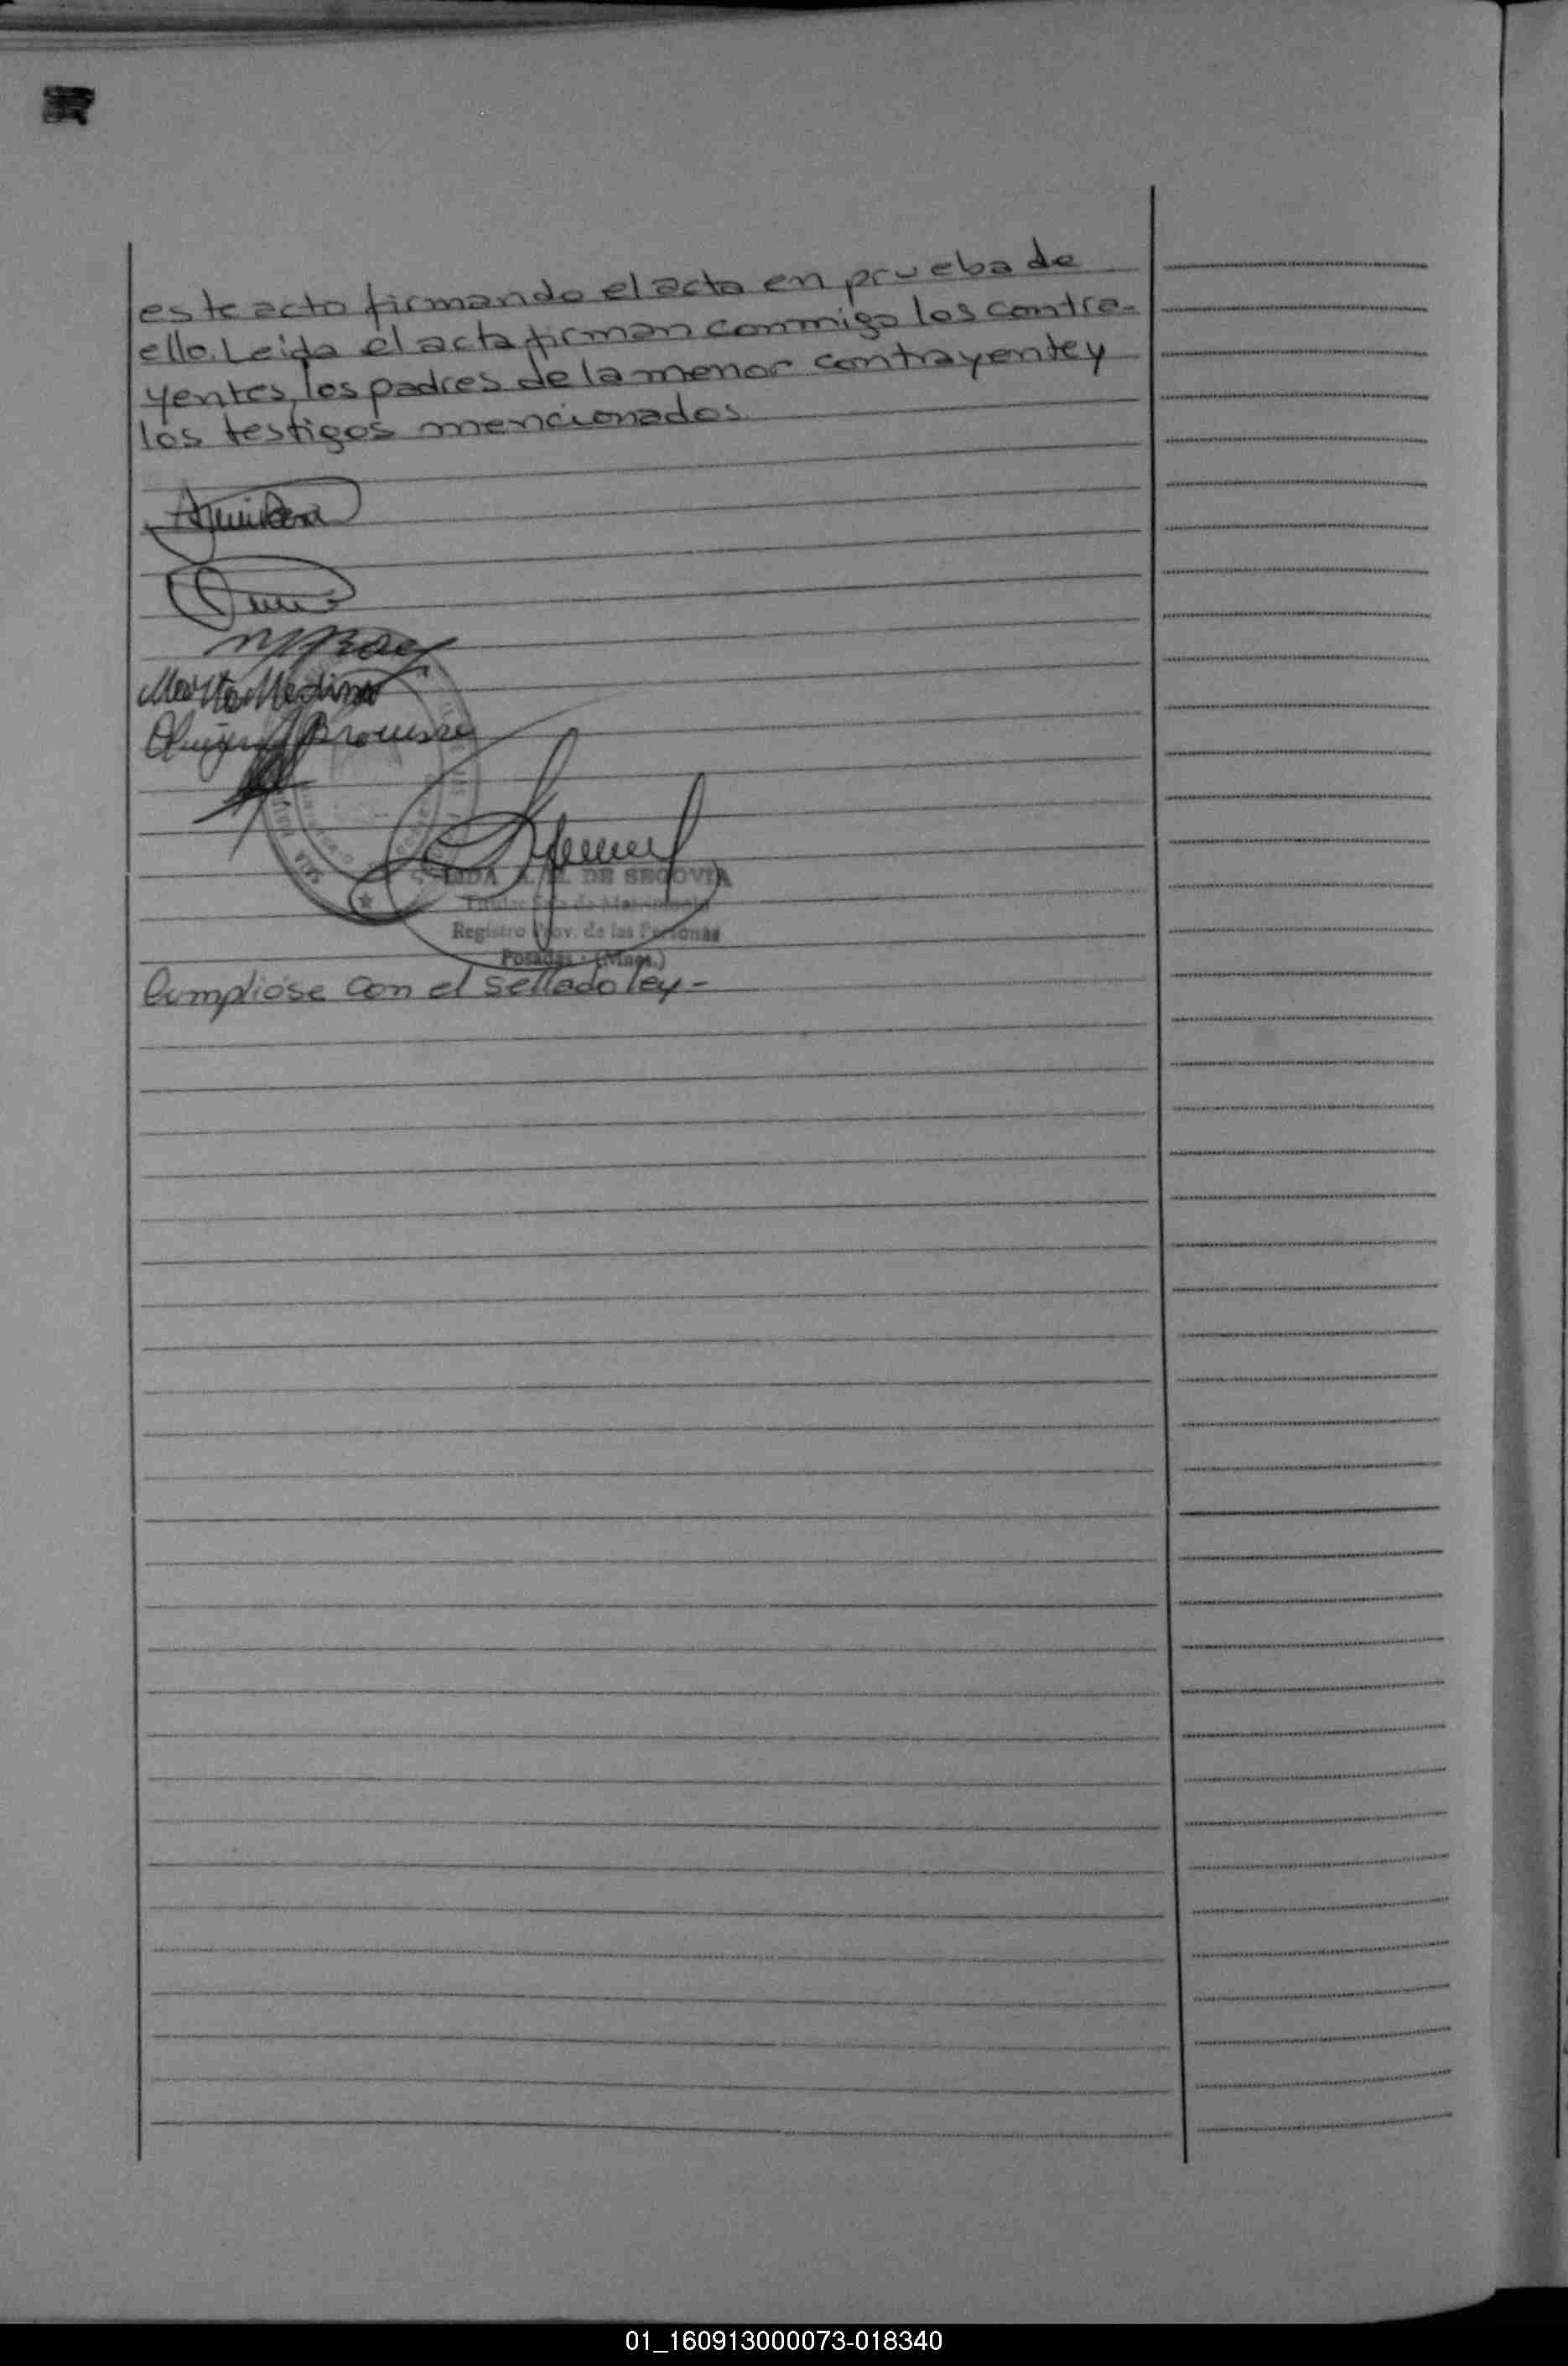 este acto firmando el acta en prueba de
ello. Leida el acta firman conmigo los contra-
yentes, los padres de la menor contrayente y
los testigos mencionados
Marta Medina
DE SEGOVIA
Titular de Matrimonio
Registro Prov. de las Personas
Posadas - (Mnes.)
Cumplióse con el sellado ley -
01_160913000073-018340